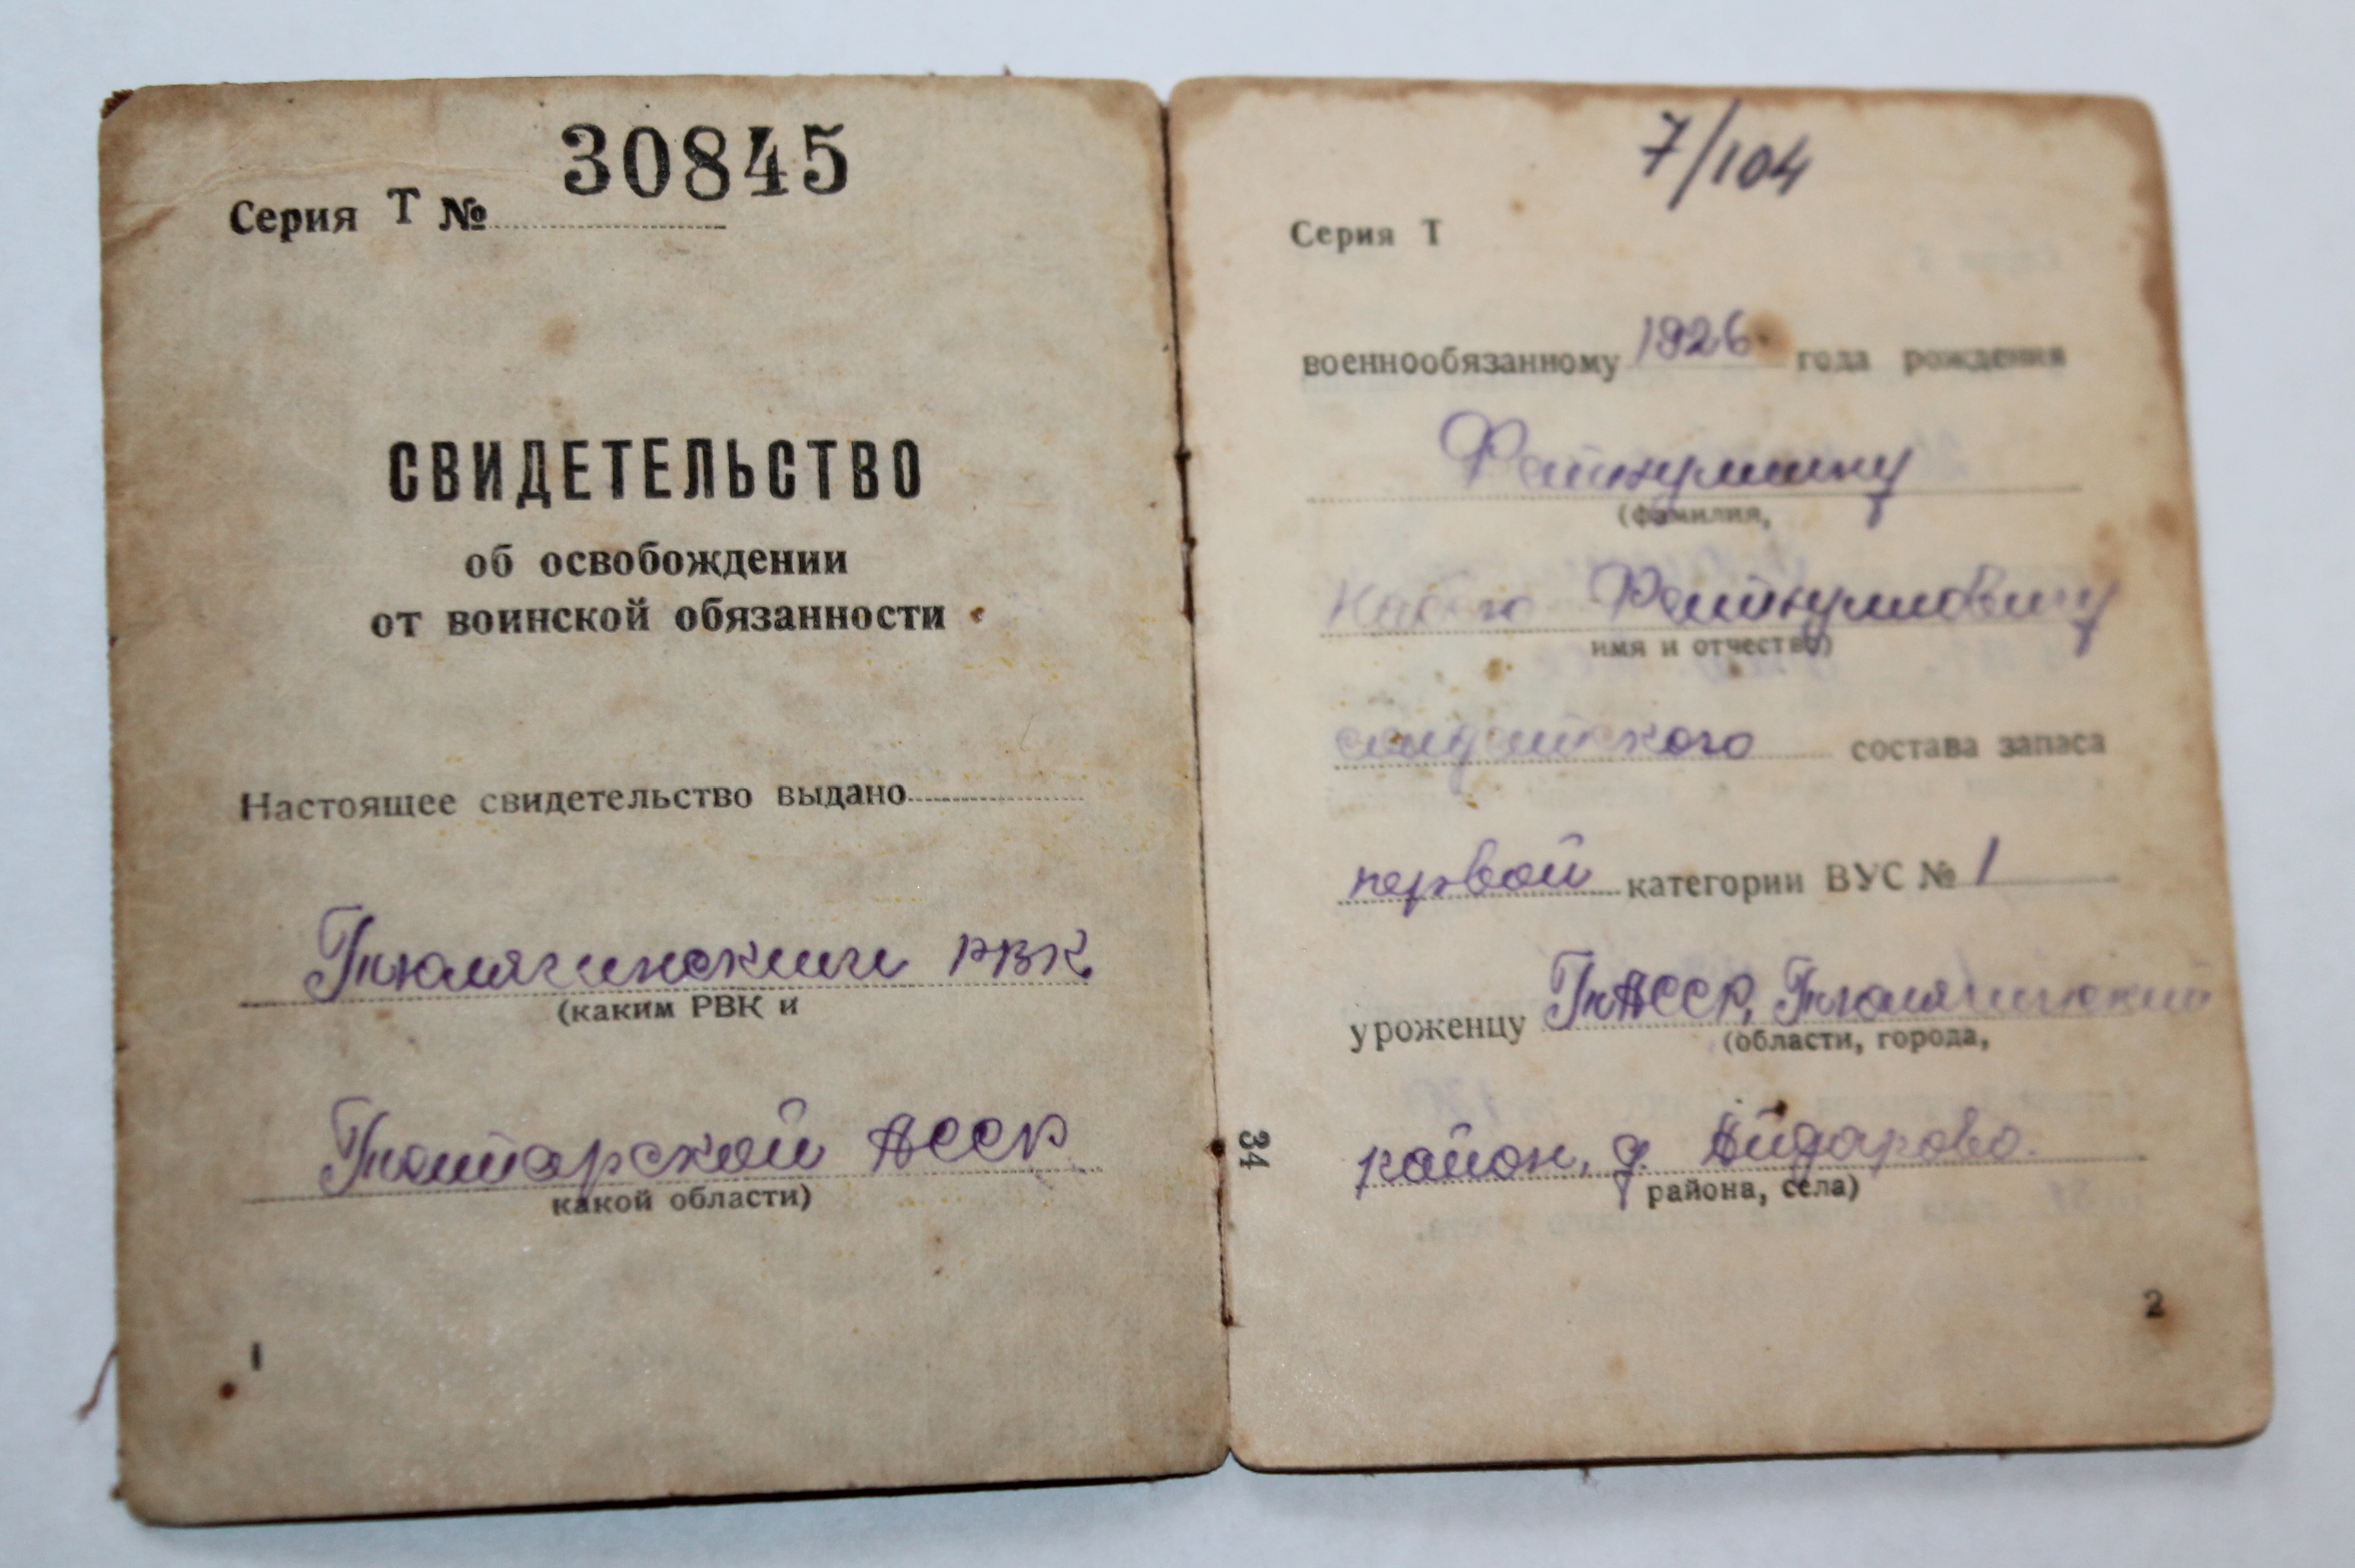 30845
Серия Т №
СВИДЕТЕЛЬСТВО
об освобождении
от воинской обязанности
Настоящее свидетельство выдано
Тюлячинским РВК
(каким РВК и
Татарской АССР
какой области)
1
7/104
Серия Т
военнообязанному 1926 года рождения
(фамилия,
имя и отчество)
солдатского состава запаса
первой категории ВУС № 1
уроженцу ТАССР, Тюлячинский
(области, города,
район, д. Айдарово.
района, села)
34
2